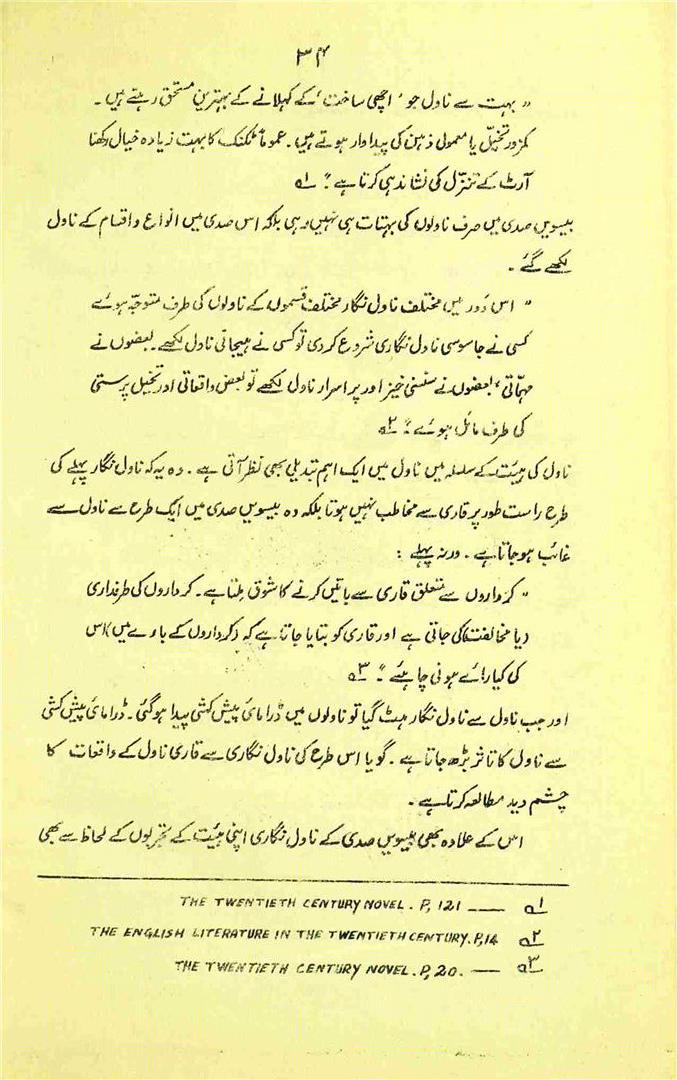 ۳۴
" بہت سے ناول جو ' اچھی ساخت ' کے کہلانے کے بہترین مستحق رہتے ہیں ۔
کمزور تخیّل یا معمولی ذہین کی پیداوار ہوتے ہیں ۔ عموماً ٹکنک کا بہت زیادہ خیال رکھنا
آرٹ کے تنزّل کی نشاندہی کرتا ہے " ۱؎
بیسویں صدی میں صرف ناولوں کی بہتات ہی نہیں رہی بلکہ اس صدی میں انواع و اقسام کے ناول
لکھے گئے ۔
" اس دَور میں مختلف ناول نگار مختلف قسموں کے ناولوں کی طرف متوجّہ ہوئے
کسی نے جاسوسی ناول نگاری شروع کردی تو کسی نے ہیجانی ناول لکھے ۔ بعضوں نے
مہمّاتی ، بعضوں نے سنسنی خیز اور پراسرار ناول لکھے تو بعض واقعاتی اور تخیل پرستی
کی طرف مائل ہوئے " ۲؎
ناول کی ہیئت کے سلسلہ میں ناول میں ایک اہم تبدیلی بھی نظر آتی ہے ۔ وہ یہ کہ ناول نگار پہلے کی
طرح راست طور پر قاری سے مخاطب نہیں ہوتا بلکہ وہ بیسویں صدی میں ایک طرح سے ناول سے
غائب ہوجاتا ہے ۔ ورنہ پہلے :
" کرداروں سے متعلق قاری سے باتیں کرنے کا شوق ملتا ہے ۔ کرداروں کی طرفداری
(یا مخالفت) کی جاتی ہے اور قاری کو بتایا جاتا ہے کہ (کرداروں کے بارے میں) اس
کی کیا رائے ہونی چاہئیے " ۳؎
اور جب ناول سے ناول نگار ہٹ گیا تو ناولوں میں ڈرامائی پیش کشی پیدا ہوگئی ۔ ڈرامائی پیش کشی
سے ناول کا تاثر بڑھ جاتا ہے ۔ گویا اس طرح کی ناول نگاری سے قاری ناول کے واقعات کا
چشم دید مطالعہ کرتا ہے ۔
اس کے علاوہ بھی بیسویں صدی کے ناول نگاری اپنی ہیئت کے تجربوں کے لحاظ سے بھی
۱؎ — THE TWENTIETH CENTURY NOVEL. P, 121
۲؎ THE ENGLISH LITERATURE IN THE TWENTIETH CENTURY. P,14
۳؎ — THE TWENTIETH CENTURY NOVEL. P, 20.